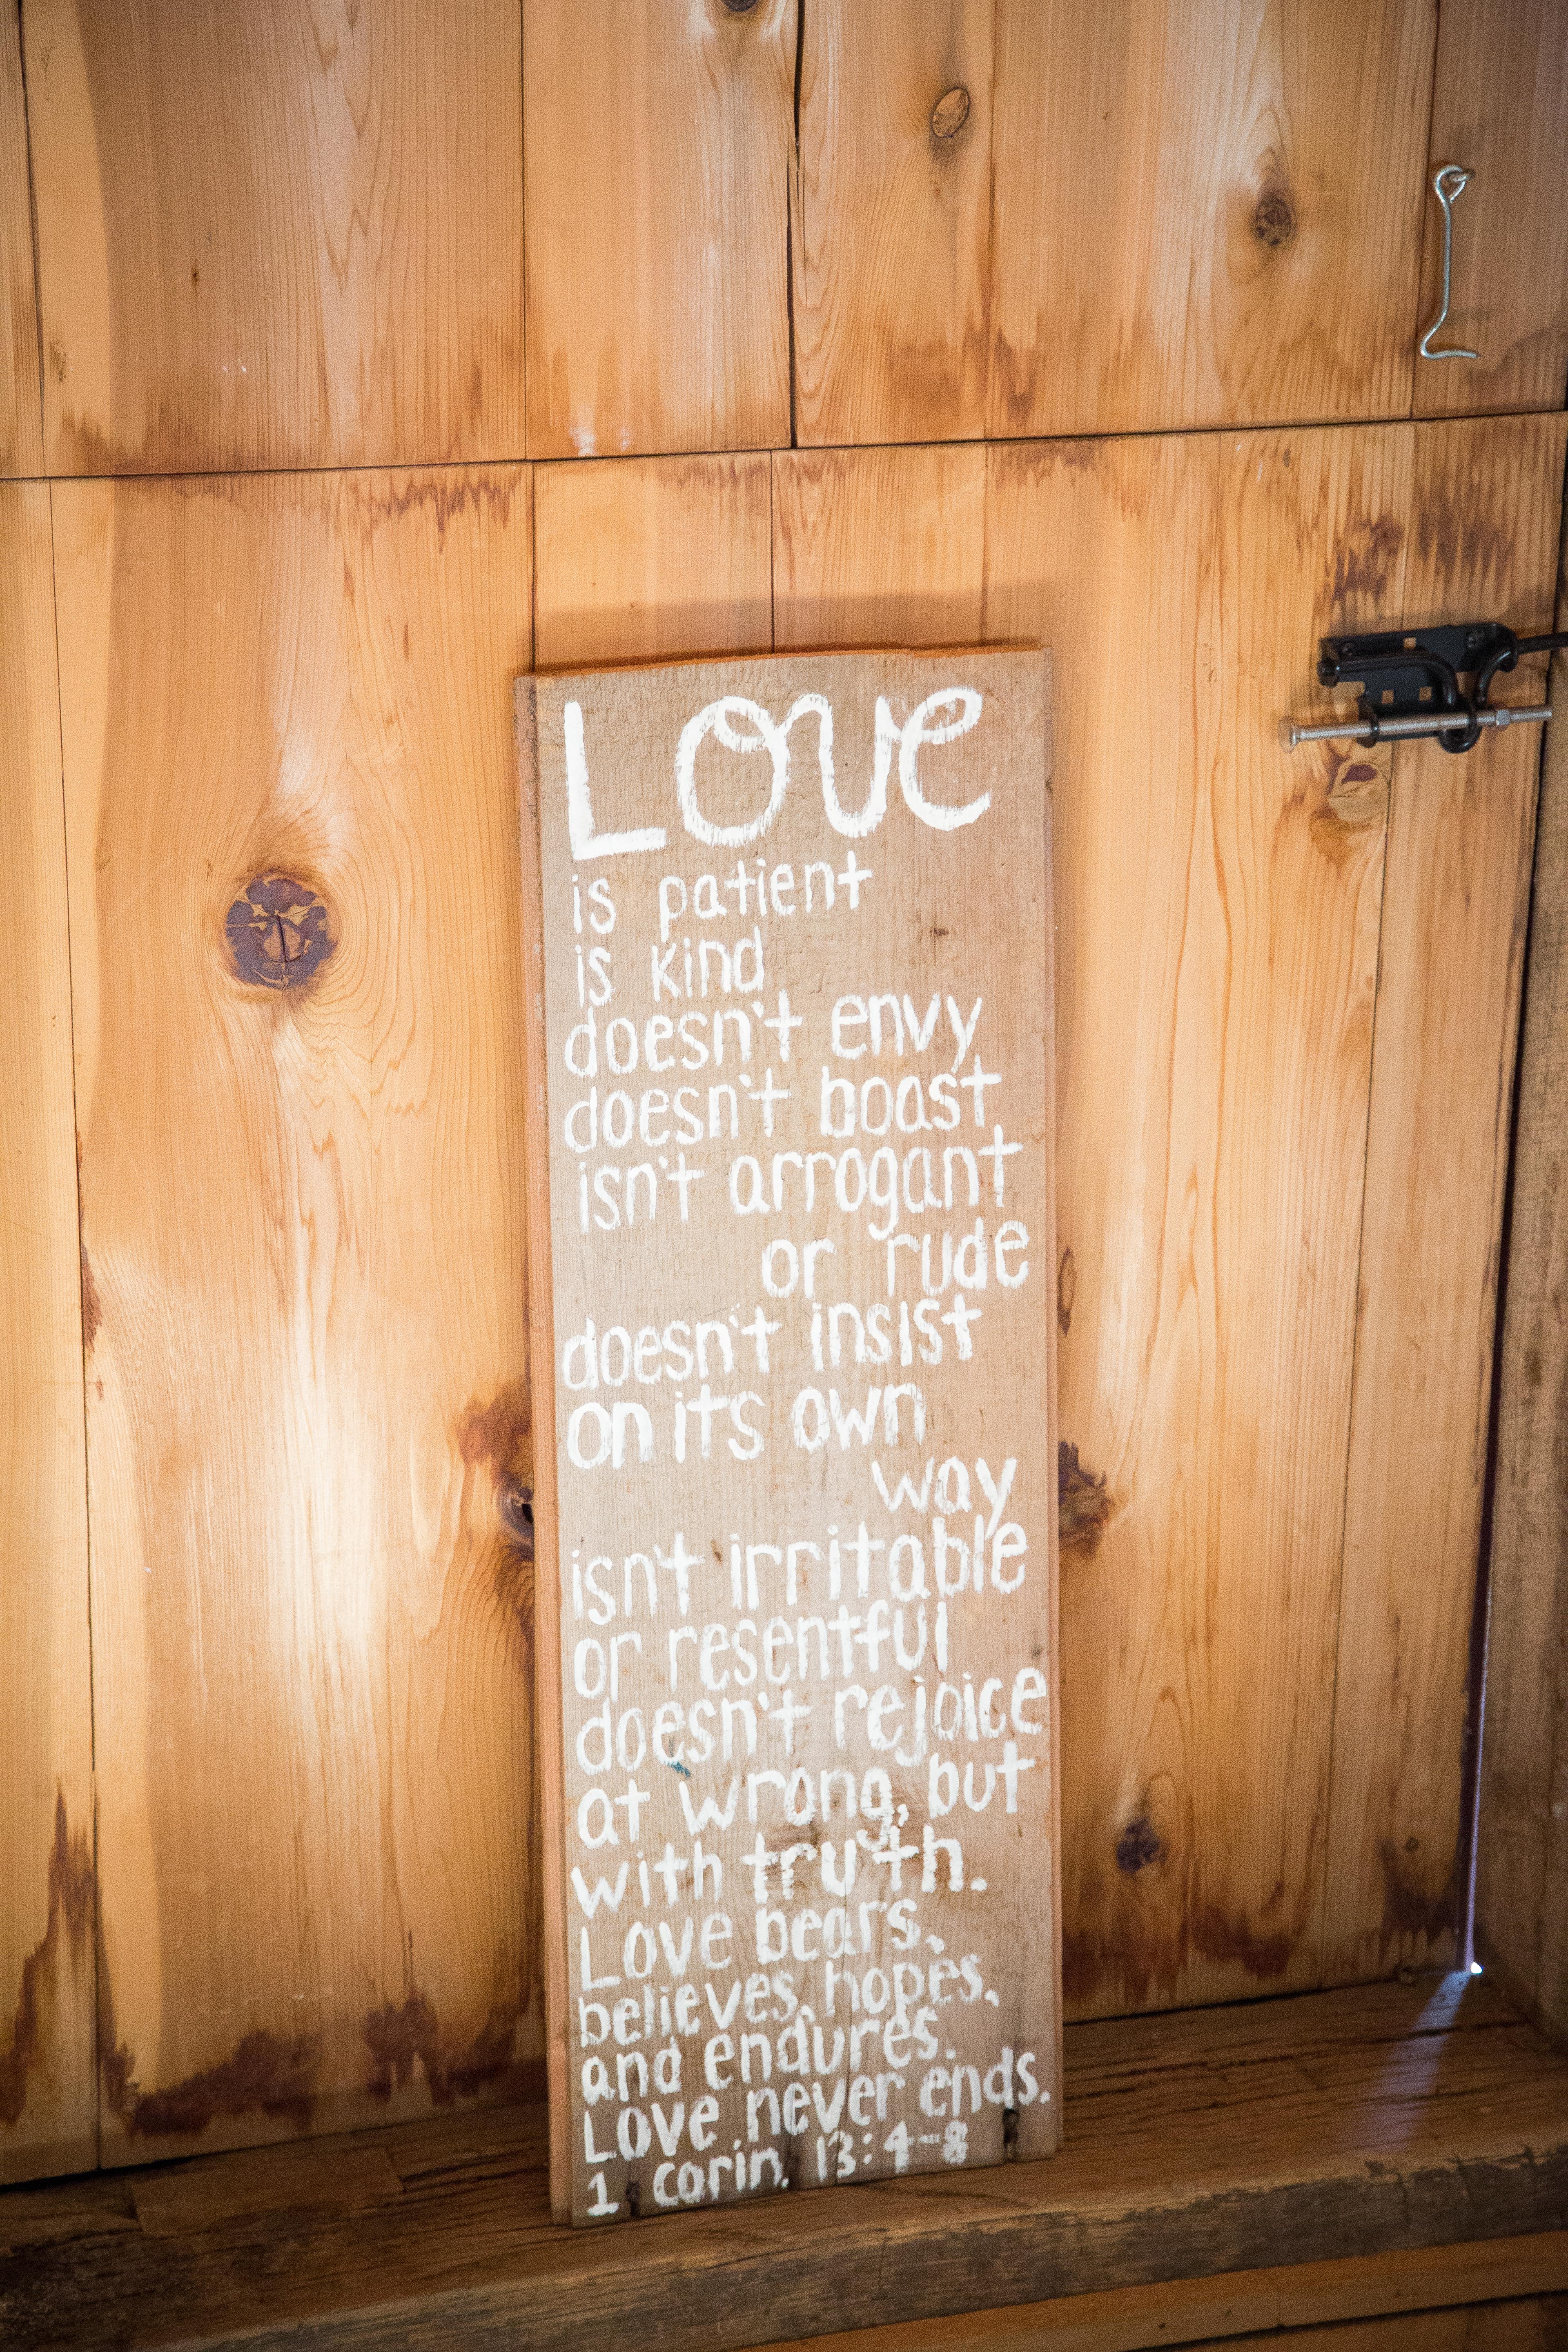 Love
is patient
is kind
doesn't envy
doesn't boast
isn't arrogant
or rude
doesn't insist
on its own
way
isn't irritable
or resentful
doesn't rejoice
at wrong, but
with truth.
Love bears,
believes, hopes,
and endures.
Love never ends.
1 Corin. 13:4-8